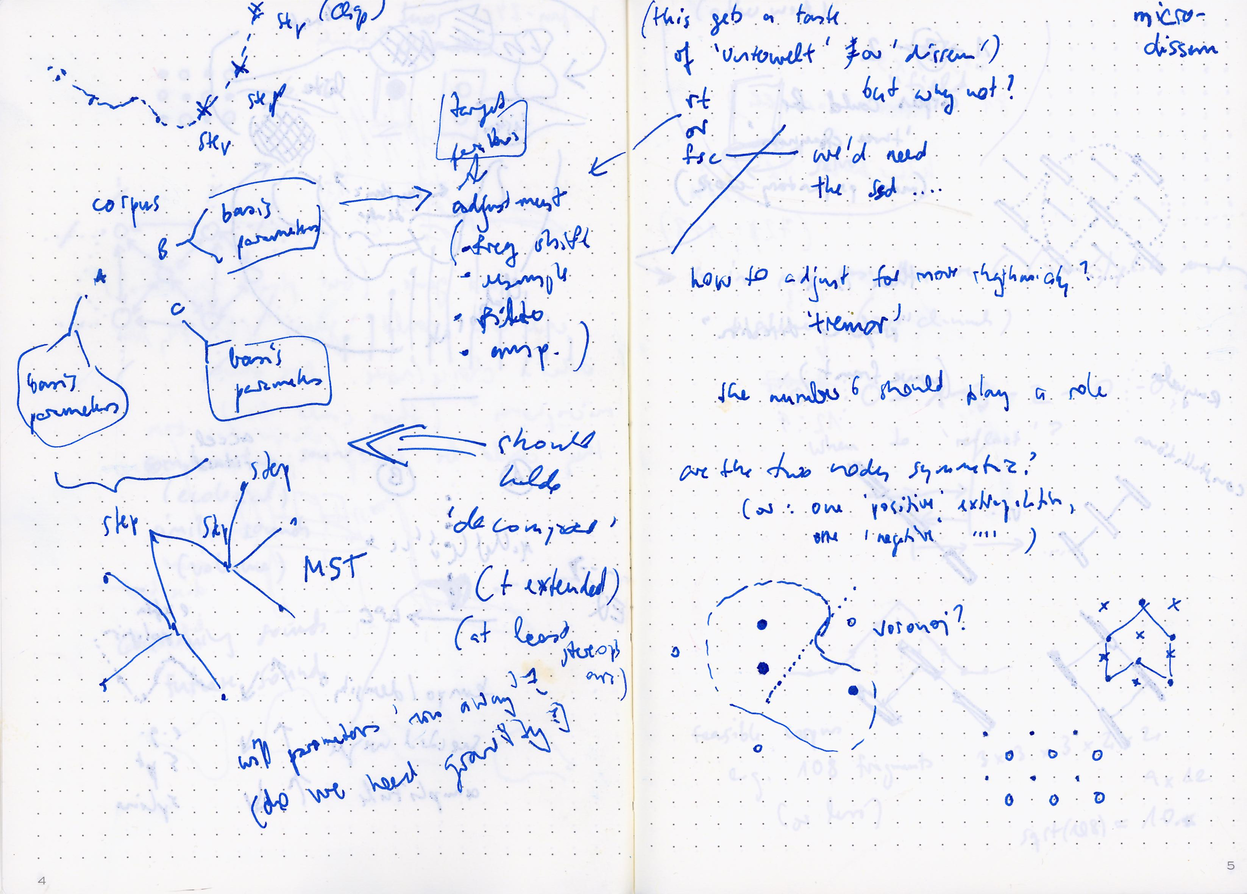 step (clip)
step
step
target
corpus
B
basis
parameters
adjustment
( • freq shift
• resample
• filter
• amp. )
A
C
basis
parameters
basis
parameters
should
step
step
step
MST
(+ extended)
(at least
will parameters 'run away'?
(do we need gravity?)
4
(this gets a taste
of 'Unterwelt' for 'dissem')
but why not?
micro-
dissem
rt
or
fsc
we'd need
the ....
how to adjust for more rhythmicity?
'tremor'
the number 6 should play a role
are the two nodes symmetric?
(or : one 'positive' extrapolation,
one 'negative' '''' )
voronoi?
5